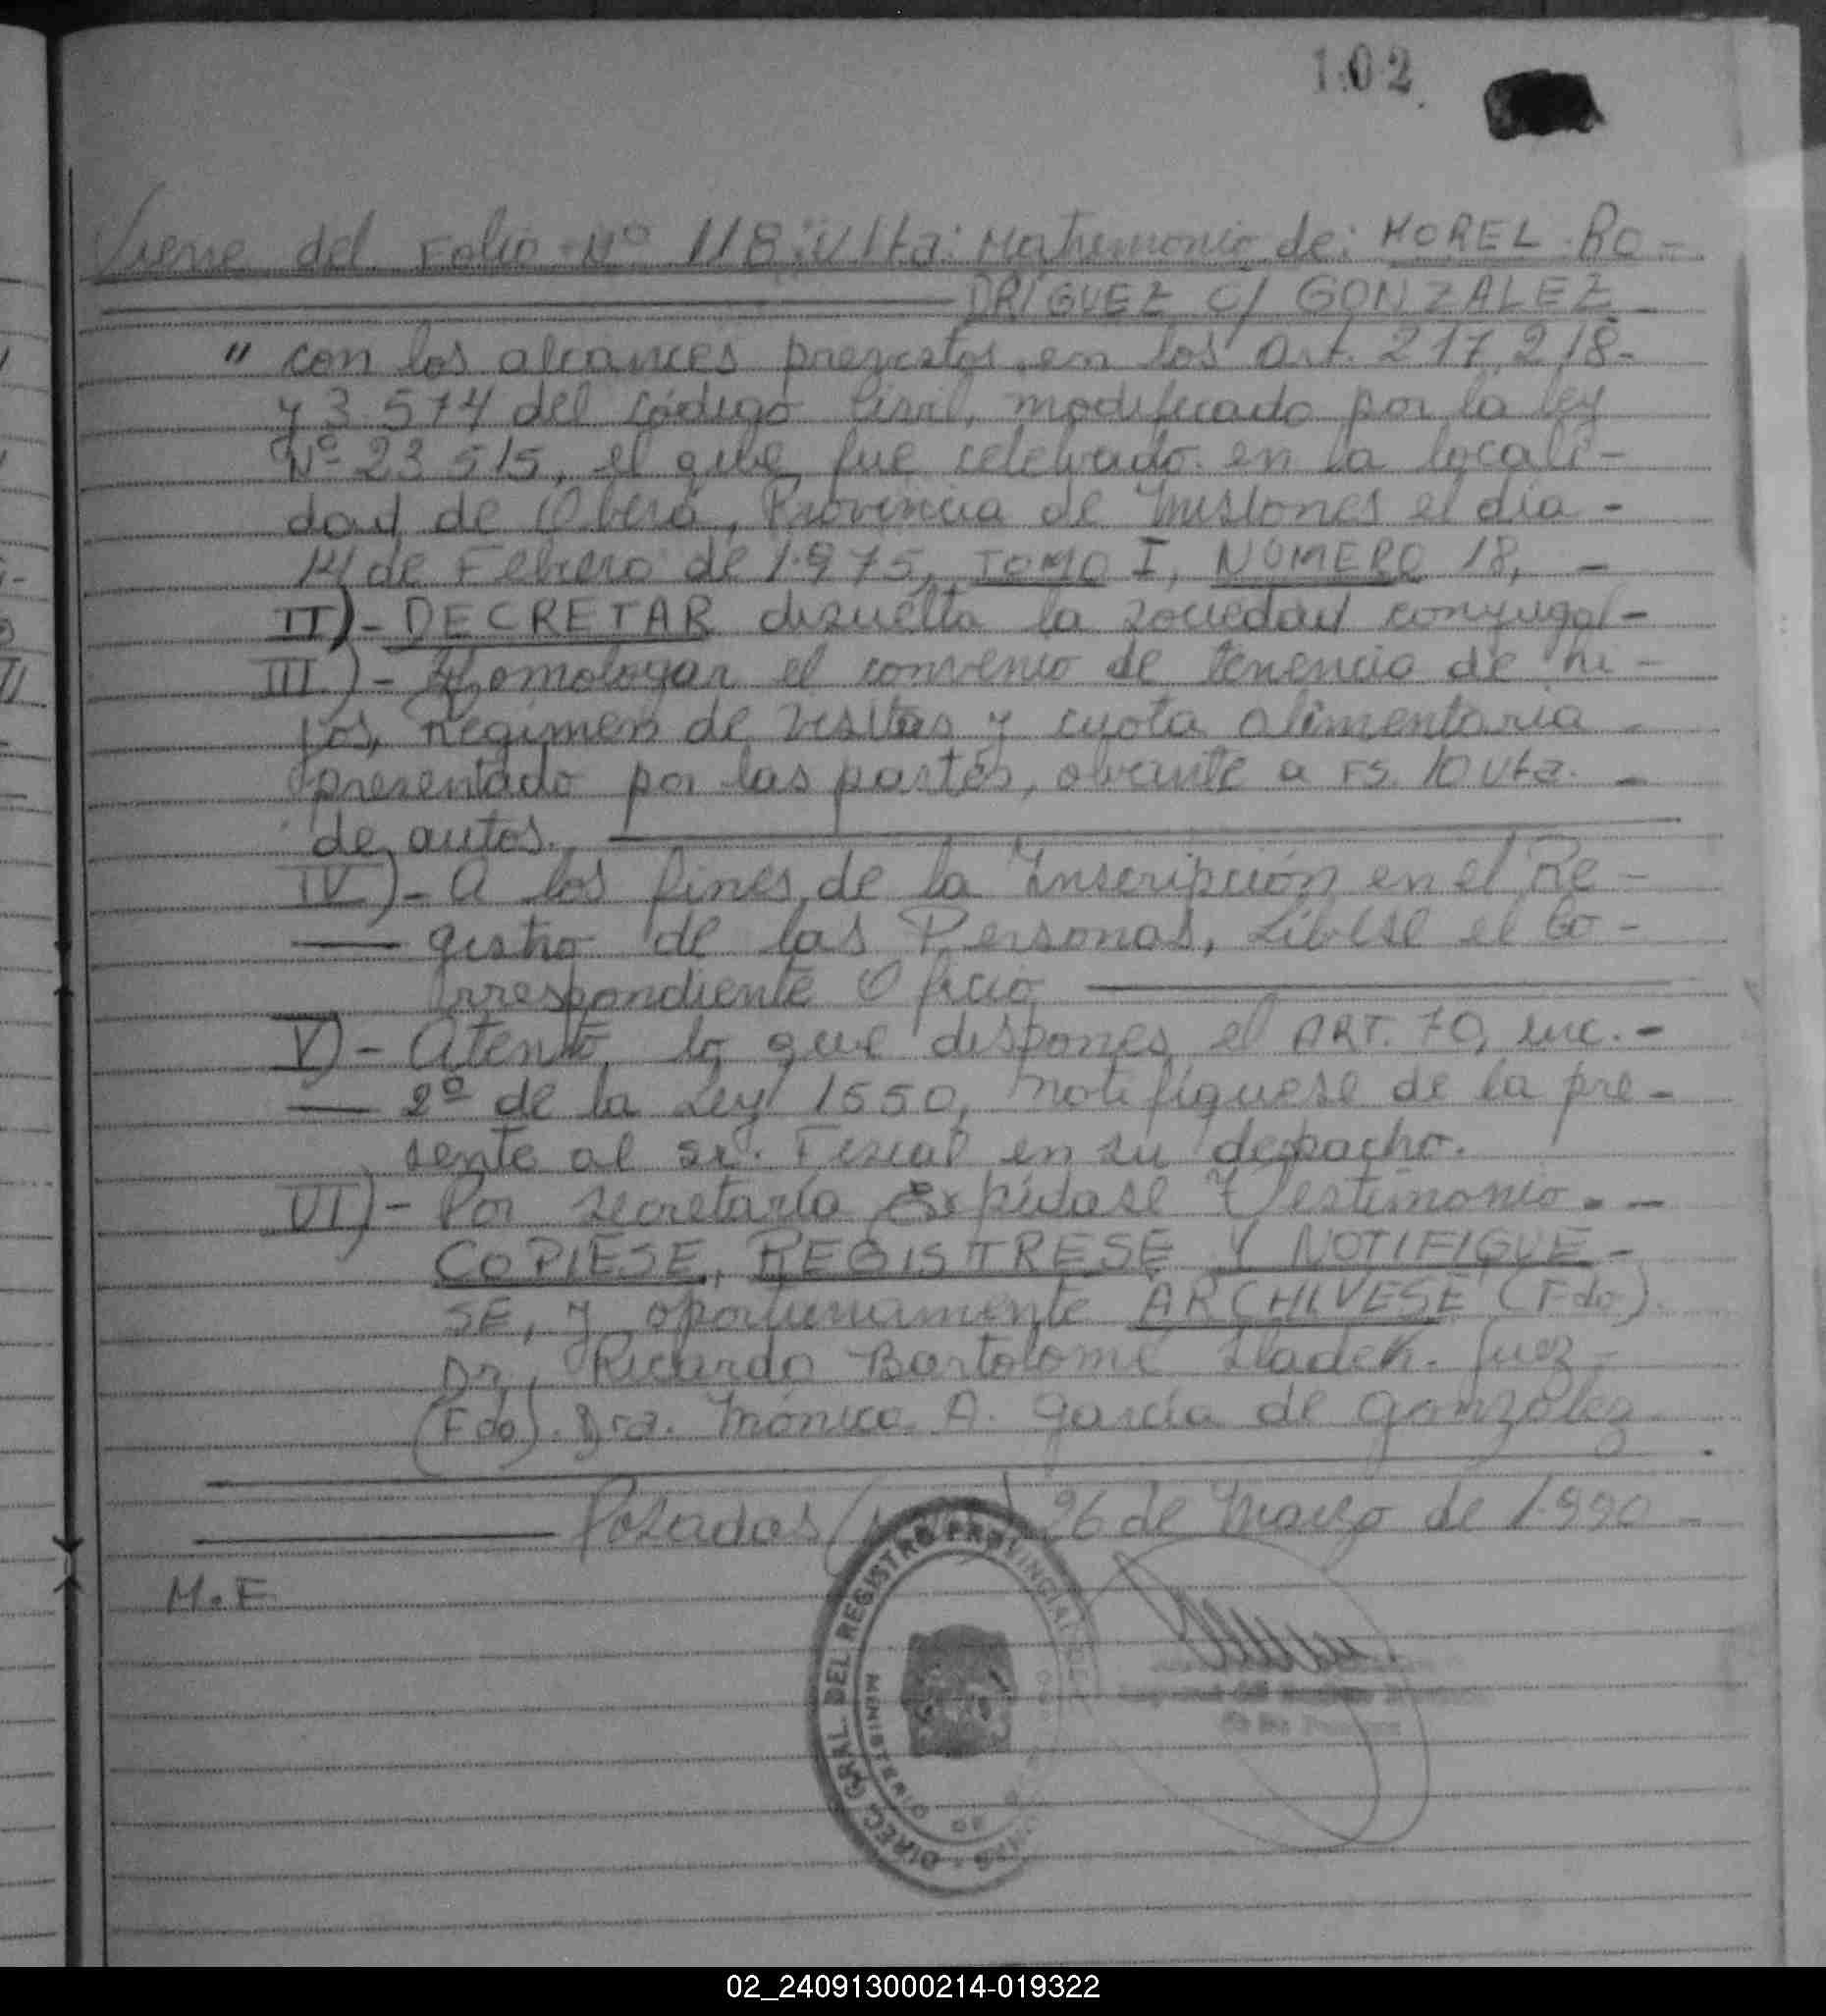 102
Viene del Folio Nº 118 vlta: Matrimonio de: MOREL RO-
DRIGUEZ C/ GONZALEZ
" con los alcances previstos en los Art. 217, 218-
y 3.574 del Código Civil, modificado por la ley
Nº 23.515, el que fue celebrado en la locali-
dad de Oberá, Provincia de Misiones el día -
14 de Febrero de 1.975, TOMO I, NUMERO 18, -
II)- DECRETAR disuelta la sociedad conyugal -
III)- Homologar el convenio de tenencia de hi-
jos, Regimen de visitas y cuota alimentaria -
presentado por las partes, obrante a FS. 10 vta. -
de autos.
IV)- A los fines de la Inscripción en el Re-
gistro de las Personas, Líbrese el Co-
rrespondiente Oficio
V)- Atento, lo que dispones el ART. 70, inc. -
2º de la Ley 1550, notifíquese de la pre-
sente al Sr. Fiscal en su despacho.
VI)- Por secretaría Expídase Testimonio. -
COPIESE, REGISTRESE Y NOTIFIQUE-
SE, y oportunamente ARCHIVESE (Fdo)
Dr, Ricardo Bartolomé Juez -
(Fdo). Dra. Mónica A. García de González
Posadas 26 de Marzo de 1.990 -
M.F
DIREC. GRAL. DEL REGISTRO PROVINCIAL DE
MINISTERIO DE
02_240913000214-019322